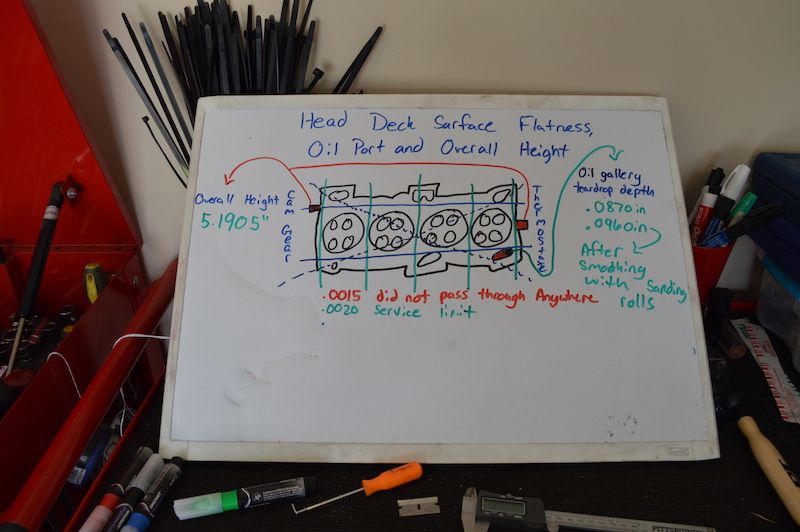 Head Deck Surface Flatness,
Oil Port and Overall Height
Overall Height
5.1905"
Cam Gear
Thermostat
Oil gallery
teardrop depth
.0870in
.0960in
After
smoothing
with Sanding
rolls
.0015 did not pass through Anywhere
.0020 Service limit
PITTSBURGH